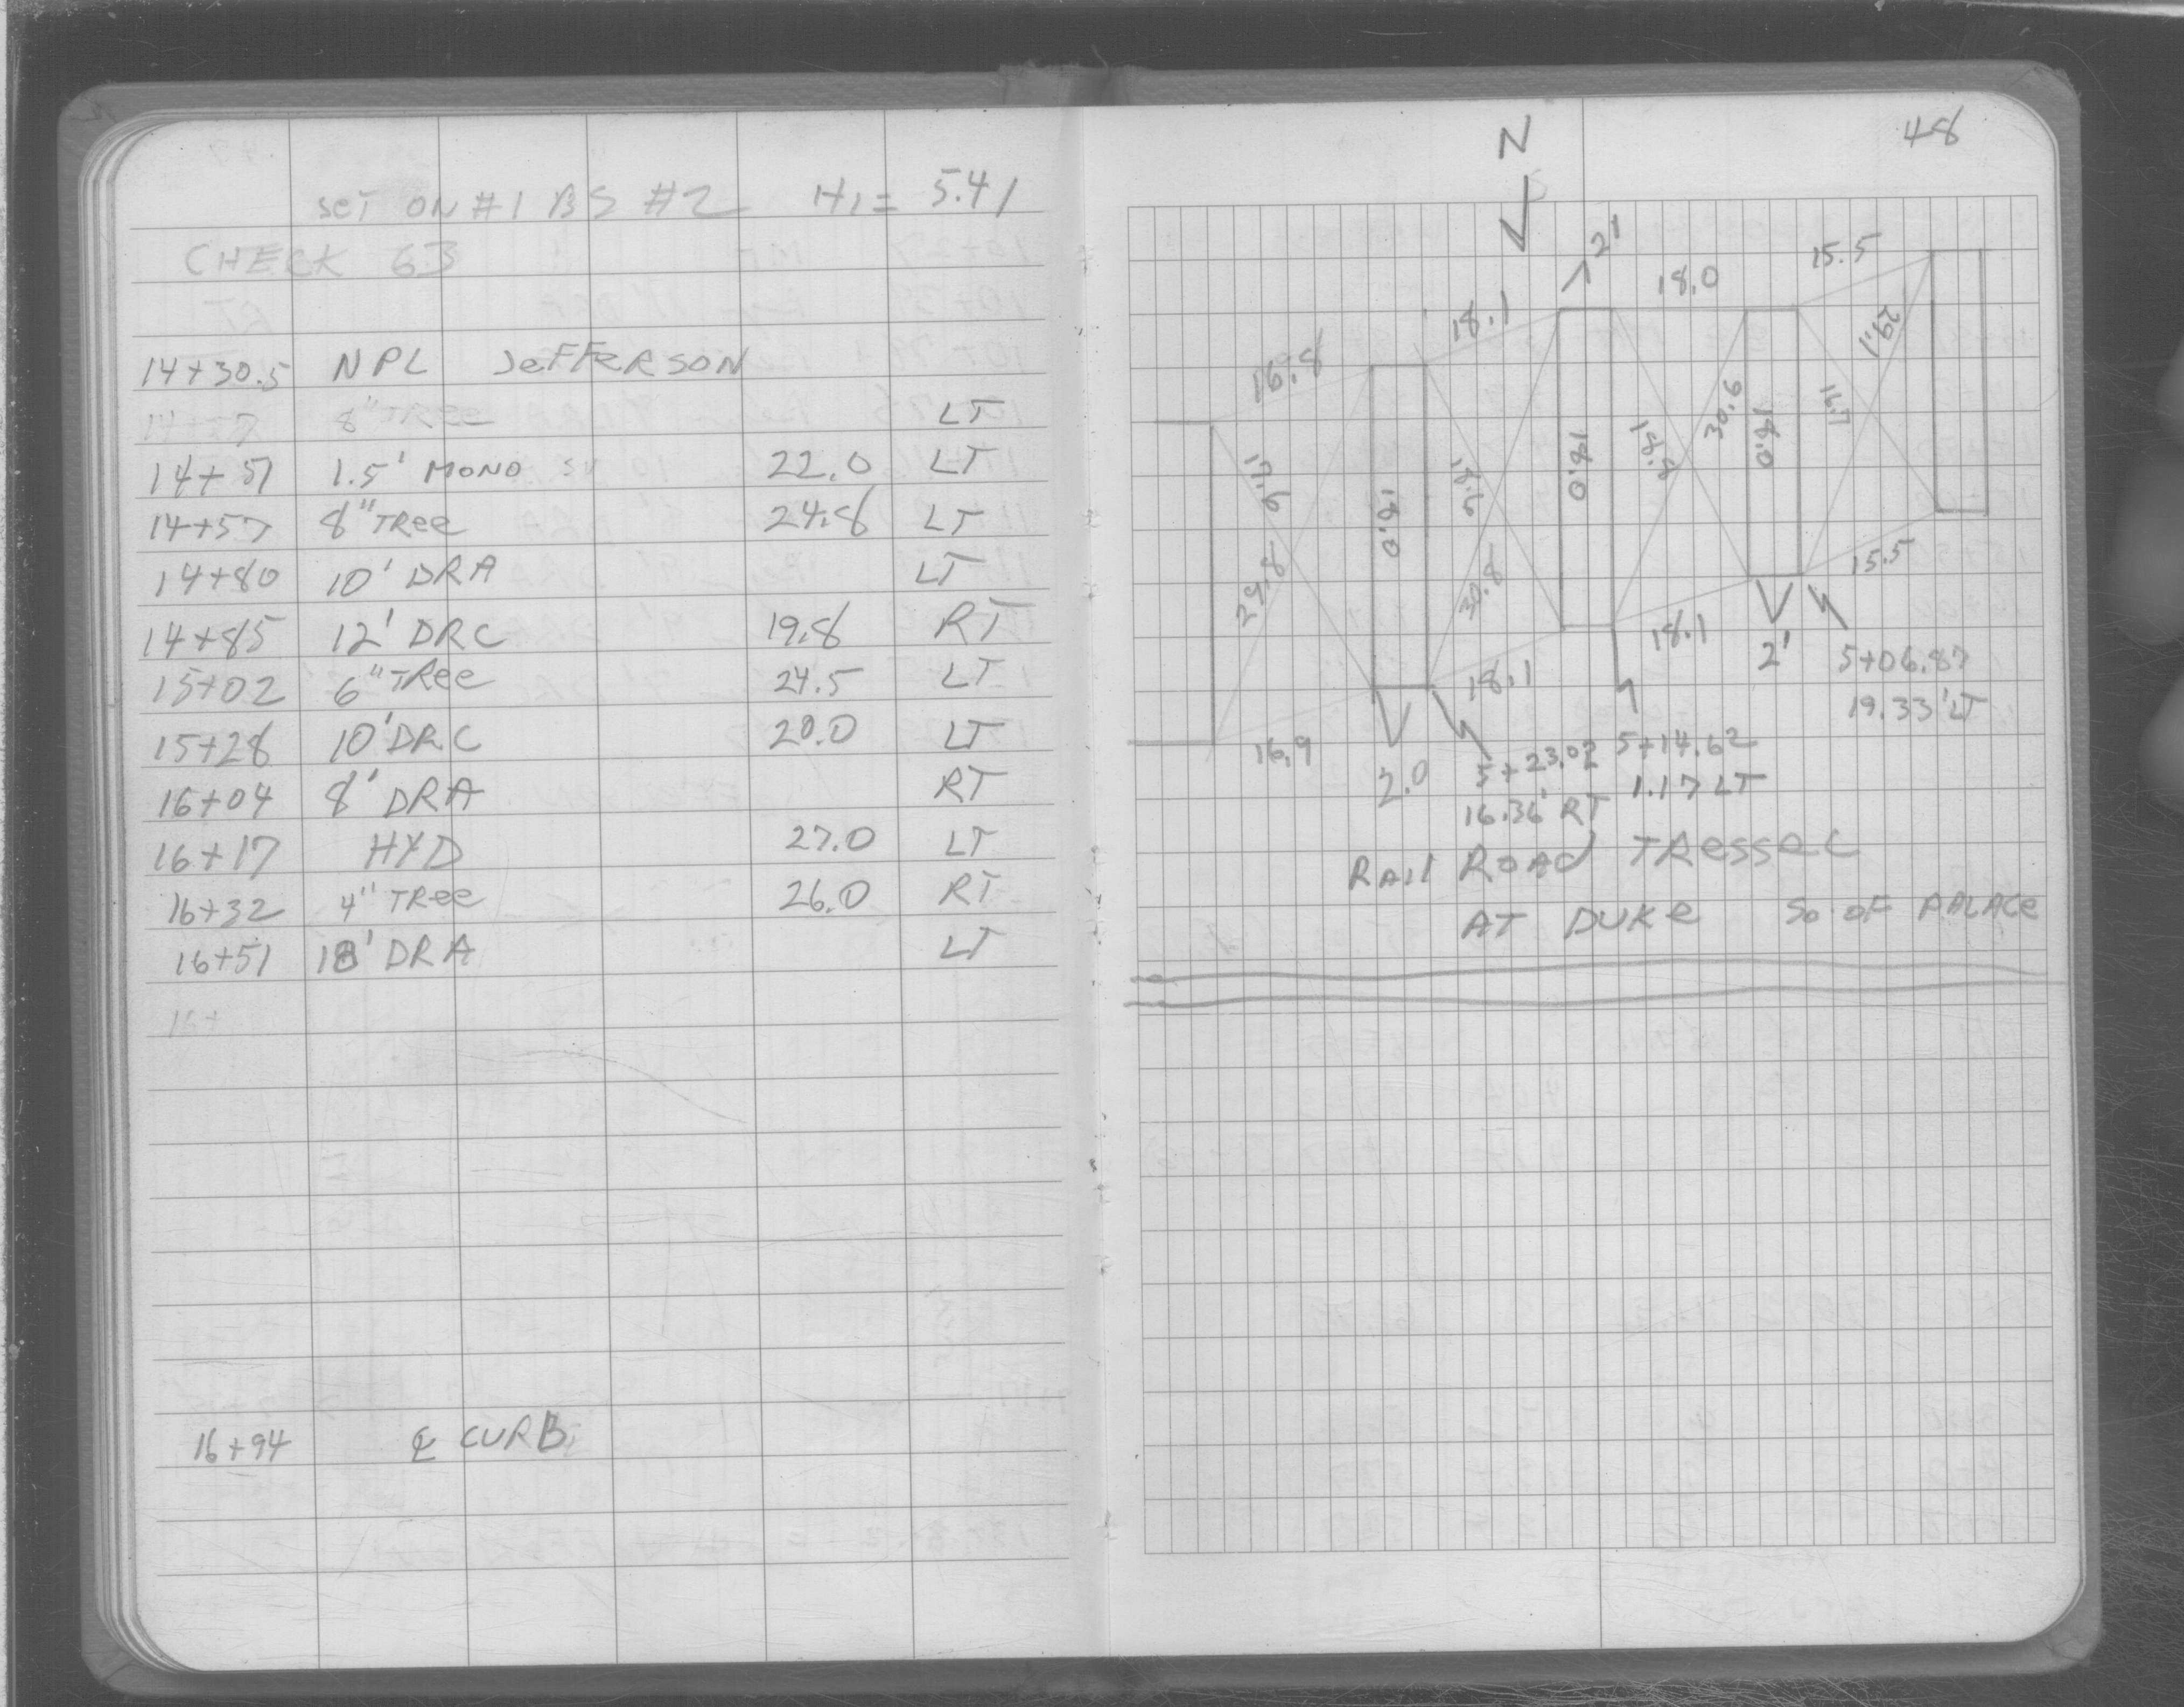 SET ON #1 BS #2 HI = 5.41
CHECK 63
14+30.5 NPL JEFFERSON
14+57 8" TREE LT
14+51 1.5' MONO 22.0 LT
14+57 8" TREE 24.8 LT
14+80 10' DRA LT
14+85 12' DRC 19.8 RT
15+02 6" TREE 24.5 LT
15+28 10' DRC 20.0 LT
16+04 8' DRA RT
16+17 HYD 27.0 LT
16+32 4" TREE 26.0 RT
16+51 18' DRA LT
16+
16+94 ℄ CURB
48
N
2'
15.5
18.0
18.1
16.8
29.1
30.6
18.0
18.0
18.0
29.8
30.8
15.5
18.1
18.1
16.9
2'
5+06.87
19.33' LT
5+14.62
1.17 LT
5+23.02
16.36' RT
2.0
RAIL ROAD TRESSEL
AT DUKE SO. OF PALACE